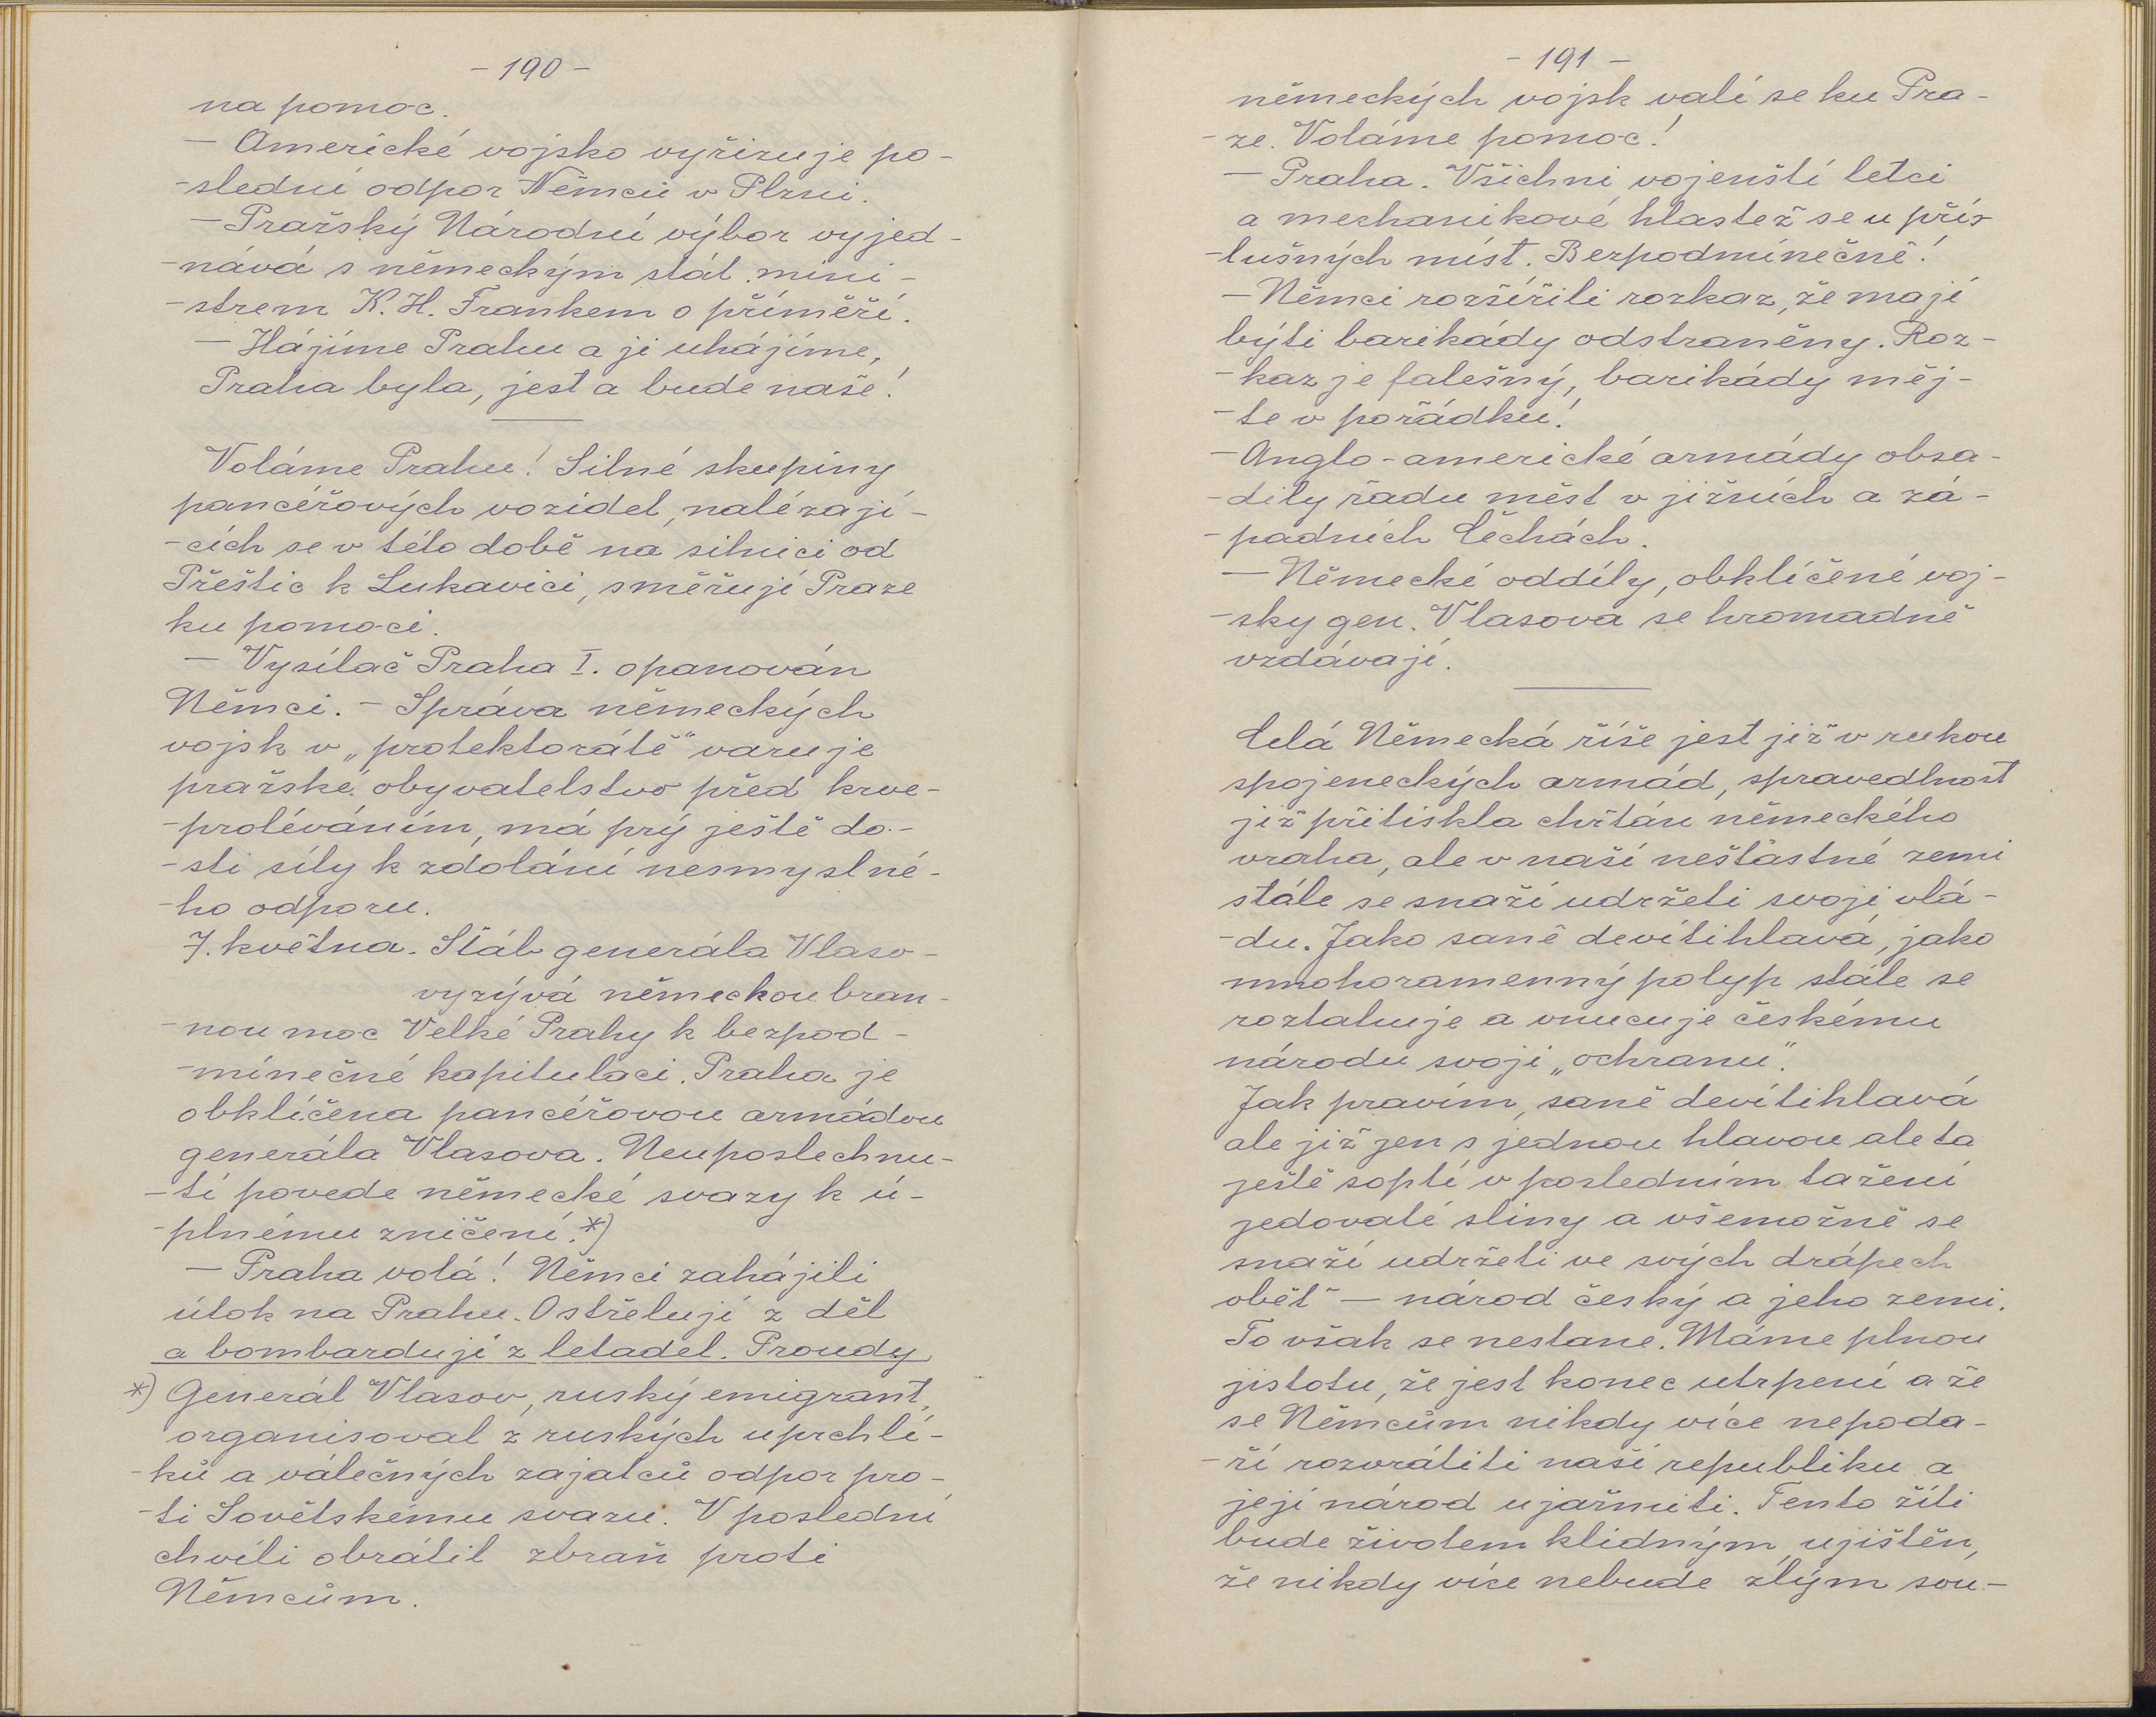 - 190 -
na pomoc.
— Americké vojsko vyřizuje po-
-slední odpor Němců v Plzni.
— Pražský Národní výbor vyjed-
-nává s německým stát. mini-
-strem K. H. Frankem o příměří.
— Hájíme Prahu a ji uhájíme,
Praha byla, jest a bude naše!
Voláme Prahu! Silné skupiny
pancéřových vozidel, nalézají-
-cích se v této době na silnici od
Přeštic k Lukavici, směřují Praze
ku pomoci.
— Vysílač Praha I. opanován
Němci. - Správa německých
vojsk v „protektorátě" varuje
pražské obyvatelstvo před krve-
-proléváním, má prý ještě do-
-sti síly k zdolání nesmyslné-
-ho odporu.
7. května. Štáb generála Vlaso-
vyzývá německou bran-
-nou moc Velké Prahy k bezpod-
-mínečné kapitulaci. Praha je
obklíčena pancéřovou armádou
generála Vlasova. Neuposlechnu-
-tí povede německé svazy k ú-
-plnému zničení.*)
— Praha volá! Němci zahájili
útok na Prahu. Ostřelují z děl
a bombardují z letadel. Proudy
*) Generál Vlasov, ruský emigrant,
organisoval z ruských uprchlí-
-ků a válečných zajatců odpor pro-
-ti Sovětskému svazu. V poslední
chvíli obrátil zbraň proti
Němcům.
- 191 -
německých vojsk valí se ku Pra-
-ze. Voláme pomoc!
— Praha. Všichni vojenští letci
a mechanikové hlaste​ž se u přís-
-lušných míst. Bezpodmínečně!
— Němci rozšířili rozkaz, že mají
býti barikády odstraněny. Roz-
-kaz je falešný, barikády měj-
-te v pořádku!
— Anglo-americké armády obsa-
-dily řadu měst v jižních a zá-
-padních Čechách.
— Německé oddíly, obklíčené voj-
-sky gen. Vlasova se hromadně
vzdávají.
Celá Německá říše jest již v rukou
spojeneckých armád, spravedlnost
již přitiskla chřtán německého
vraha, ale v naší nešťastné zemi
stále se snaží udržeti svoji vlá-
-du. Jako saně devítihlavá, jako
mnohoramenný polyp stále se
roztahuje a vnucuje českému
národu svoji „ochranu".
Jak pravím, saně devítihlavá
ale již jen s jednou hlavou ale ta
ještě soptí v posledním tažení
jedovaté sliny a všemožně se
snaží udržeti ve svých drápech
oběť — národ český a jeho zemi.
To však se nestane. Máme plnou
jistotu, že jest konec utrpení a že
se Němcům nikdy více nepoda-
-ří rozvrátiti naši republiku a
její národ ujařmiti. Tento žíti
bude životem klidným, ujištěn,
že nikdy více nebude zlým sou-